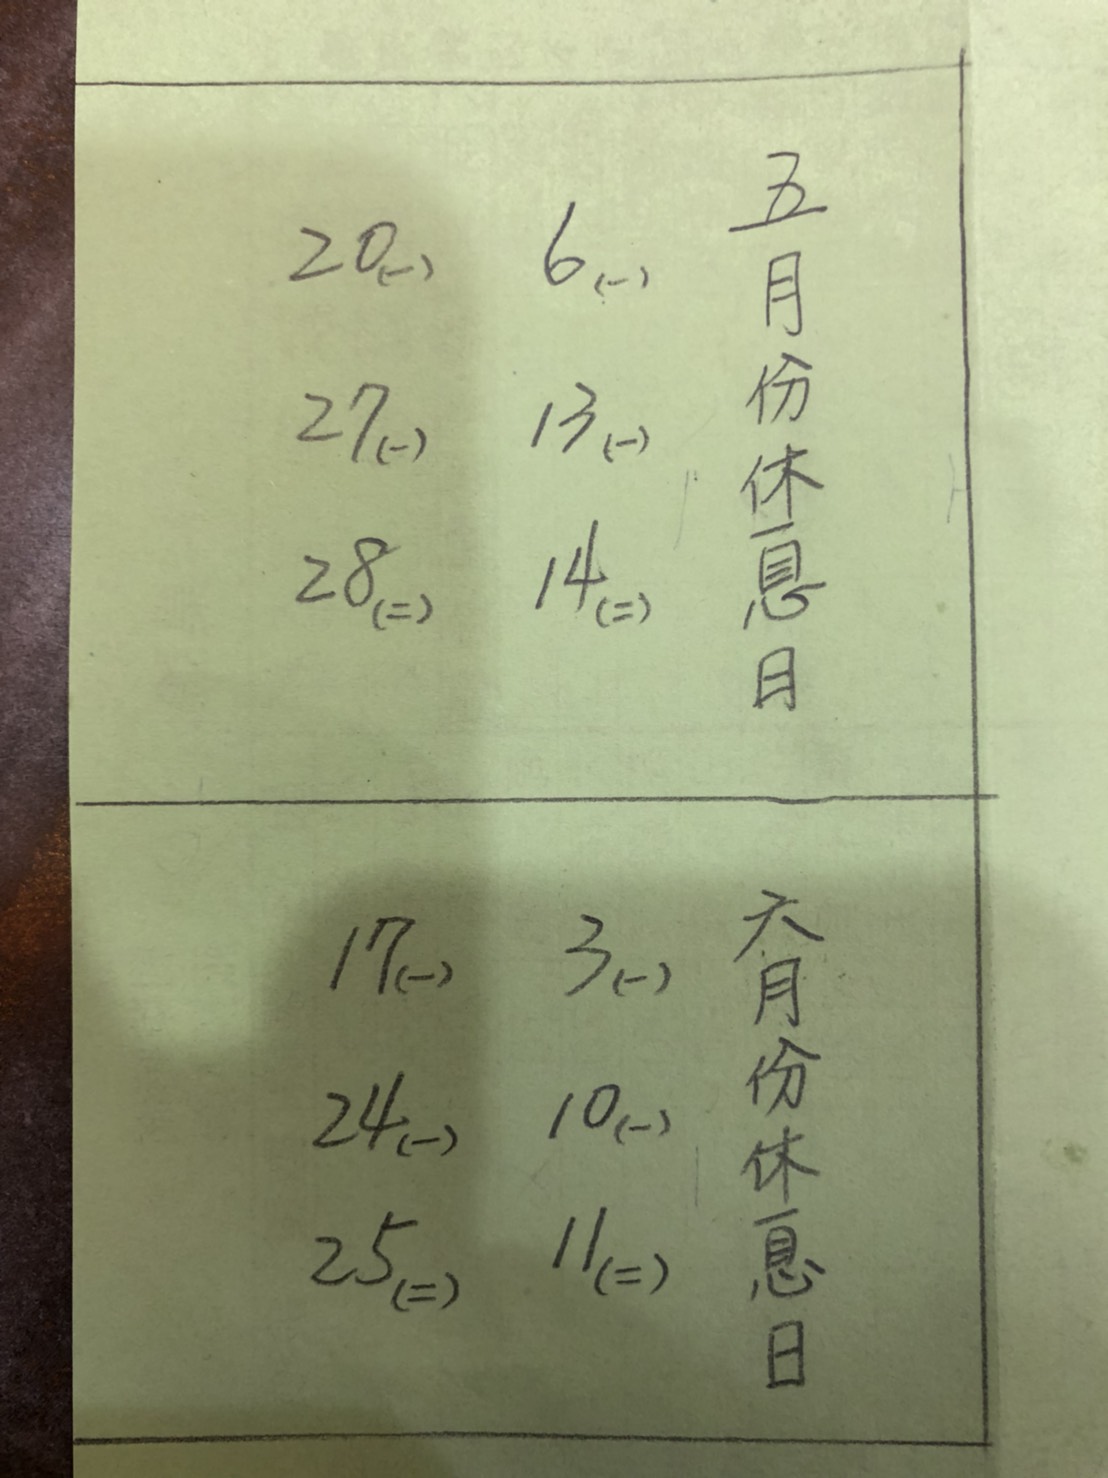 五月份休息日
6(一)
13(一)
14(二)
20(一)
27(一)
28(二)
六月份休息日
3(一)
10(一)
11(二)
17(一)
24(一)
25(二)